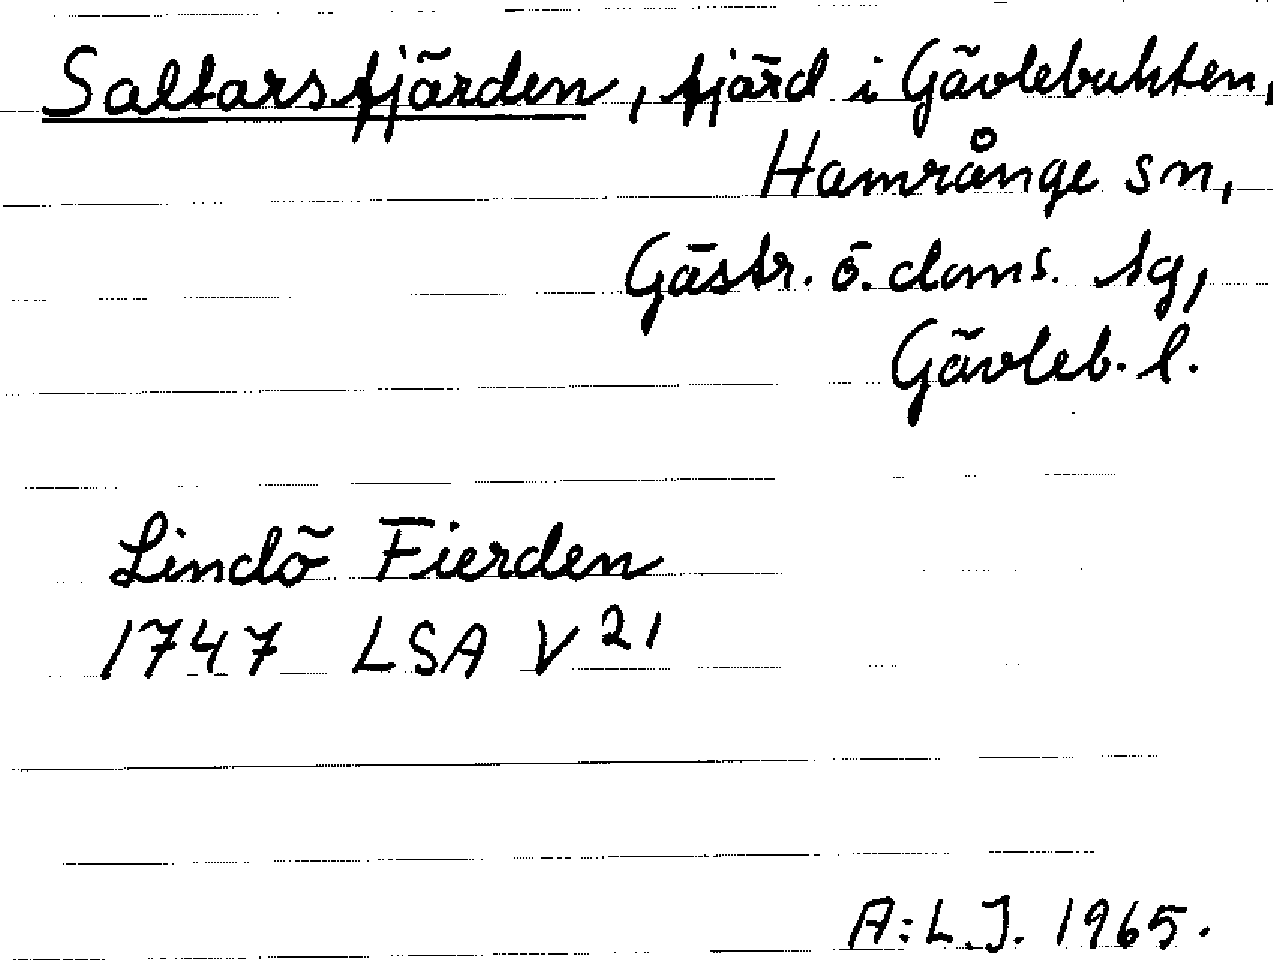 Saltarsfjärden, fjärd i Gävlebukten,
Hamrånge sn,
Gästr. ö. doms. tg,
Gävleb. l.
Lindö Fierden
1747 LSA V 21
A:L.J. 1965.